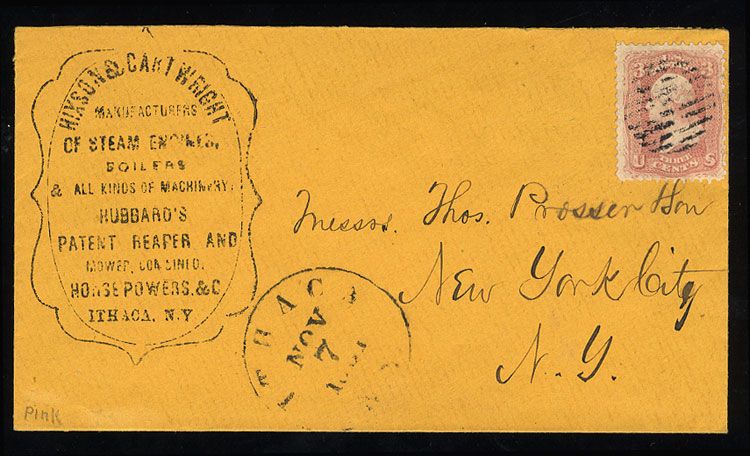 HIXSON & CARTWRIGHT
MANUFACTURERS
OF STEAM ENGINES,
BOILERS
& ALL KINDS OF MACHINERY,
HUBBARD'S
PATENT REAPER AND
MOWER, COMBINED,
HORSE POWERS, &C
ITHACA, N.Y
3 3
U THREE S
CENTS
Messrs. Thos. Prosser & Son
New York City
N. Y.
ITHACA
NOV
7
Pink